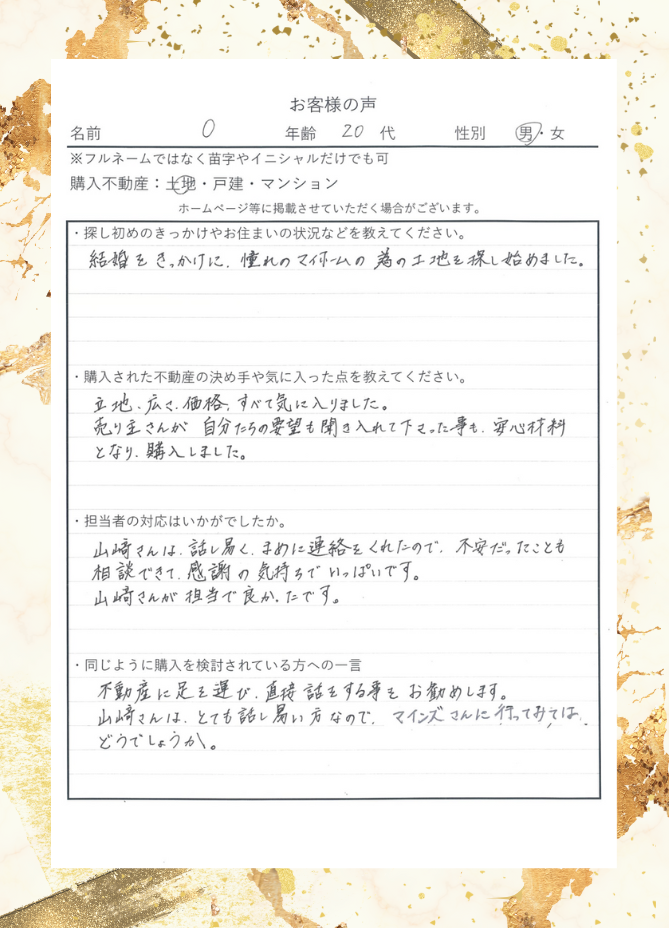 お客様の声
名前 O 年齢 20 代 性別 男・女
※フルネームではなく苗字やイニシャルだけでも可
購入不動産：土地・戸建・マンション
ホームページ等に掲載させていただく場合がございます。
・探し初めのきっかけやお住まいの状況などを教えてください。
結婚をきっかけに、憧れのマイホームの為の土地を探し始めました。
・購入された不動産の決め手や気に入った点を教えてください。
立地、広さ、価格、すべて気に入りました。
売り主さんが 自分たちの要望も聞き入れて下さった事も、安心材料
となり、購入しました。
・担当者の対応はいかがでしたか。
山崎さんは、話し易く、まめに連絡をくれたので、不安だったことも
相談できて、感謝の気持ちでいっぱいです。
山崎さんが担当で良かったです。
・同じように購入を検討されている方への一言
不動産に足を運び、直接話をする事をお勧めします。
山崎さんは、とても話し易い方なので、マインズさんに行ってみては、
どうでしょうか。